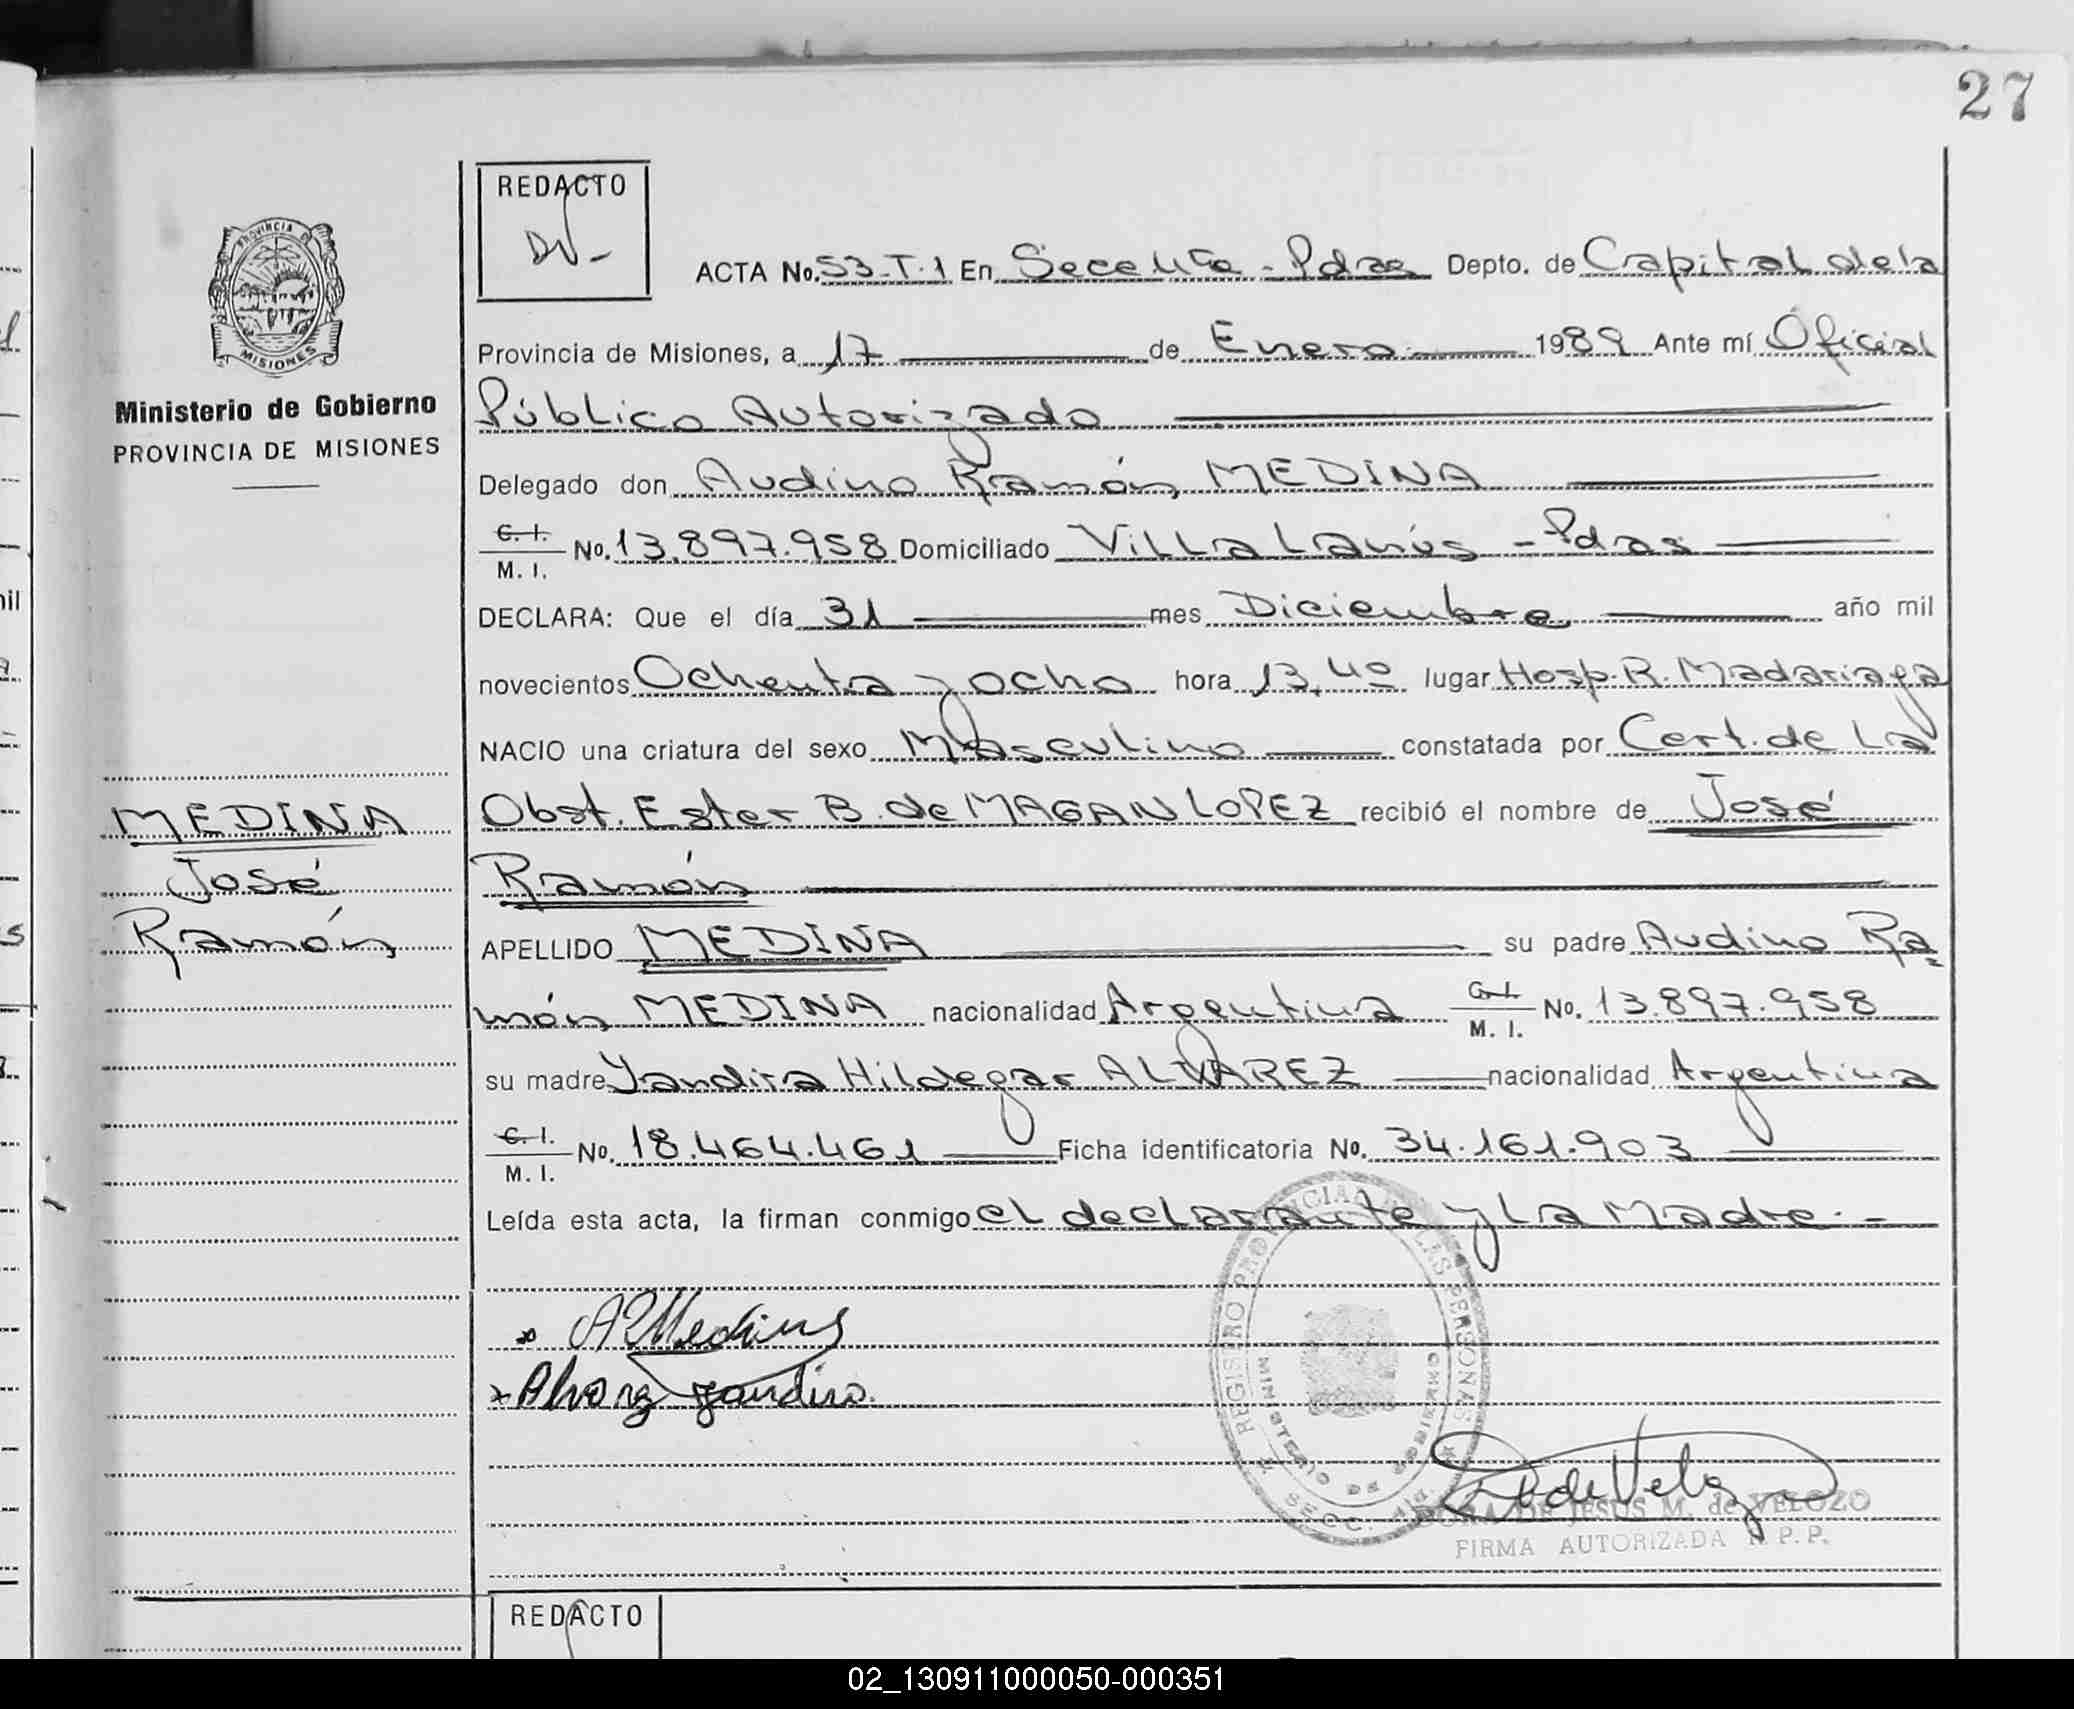 27
REDACTO
PROVINCIA DE
MISIONES
ACTA No. 53-T.1 En Secc. 4ta - Pdas Depto. de Capital de la
Provincia de Misiones, a 17 de Enero 1989 Ante mí Oficial
Ministerio de Gobierno
PROVINCIA DE MISIONES
Público Autorizado
Delegado don Audino Ramón MEDINA
C. I.
M. I.
No. 13.897.958 Domiciliado Villa Lanús - Pdas
DECLARA: Que el día 31 mes Diciembre año mil
novecientos Ochenta y ocho hora 13,40 lugar Hosp. R. Madariaga
NACIO una criatura del sexo Masculino constatada por Cert. de La
MEDINA
José
Ramón
Obst. Ester B. de MAGAN LOPEZ recibió el nombre de José
Ramón
APELLIDO MEDINA su padre Audino Ra=
món MEDINA nacionalidad Argentina C. I. M. I. No. 13.897.958
su madre Yandira Hildegar ALVAREZ nacionalidad Argentina
C. I.
M. I.
No. 18.464.461 Ficha identificatoria No. 34.161.903
Leída esta acta, la firman conmigo el declarante y La Madre.-
REGISTRO PROVINCIAL DE LAS PERSONAS
MINISTERIO DE GOBIERNO
SECC. 4ta.
A R Medina
Alvarez Yandira.
de Veloz
DE JESUS M. de VELOZO
FIRMA AUTORIZADA R.P.P.
REDACTO
02_130911000050-000351